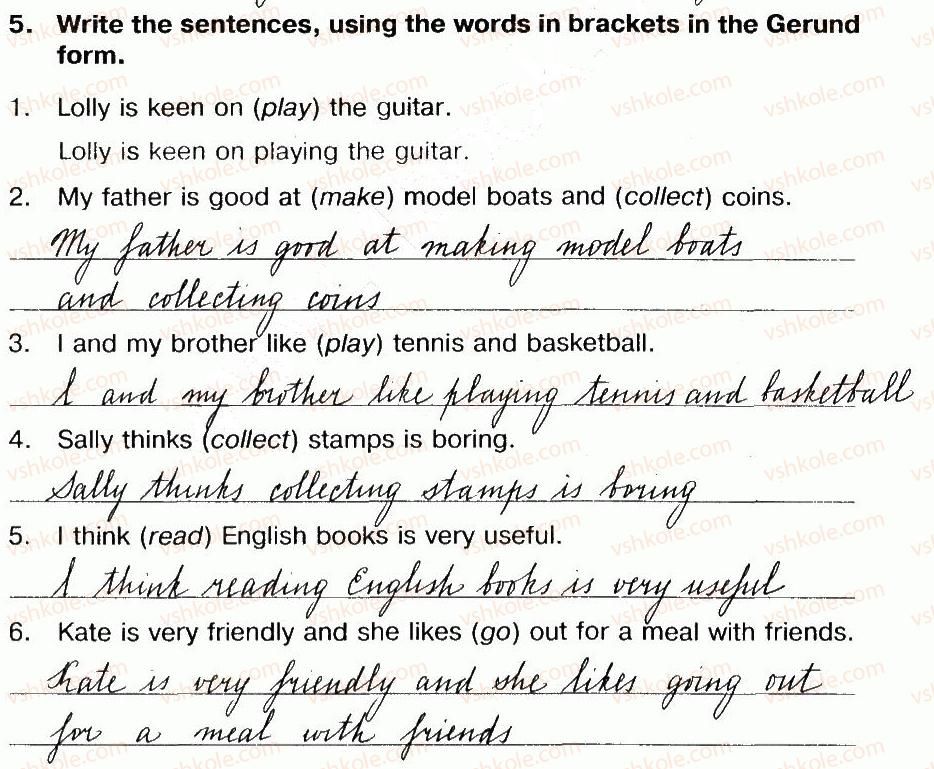 5. Write the sentences, using the words in brackets in the Gerund
form.
1. Lolly is keen on (play) the guitar.
Lolly is keen on playing the guitar.
2. My father is good at (make) model boats and (collect) coins.
My father is good at making model boats
and collecting coins
3. I and my brother like (play) tennis and basketball.
I and my brother like playing tennis and basketball
4. Sally thinks (collect) stamps is boring.
Sally thinks collecting stamps is boring
5. I think (read) English books is very useful.
I think reading English books is very useful
6. Kate is very friendly and she likes (go) out for a meal with friends.
Kate is very friendly and she likes going out
for a meal with friends
vshkole.com